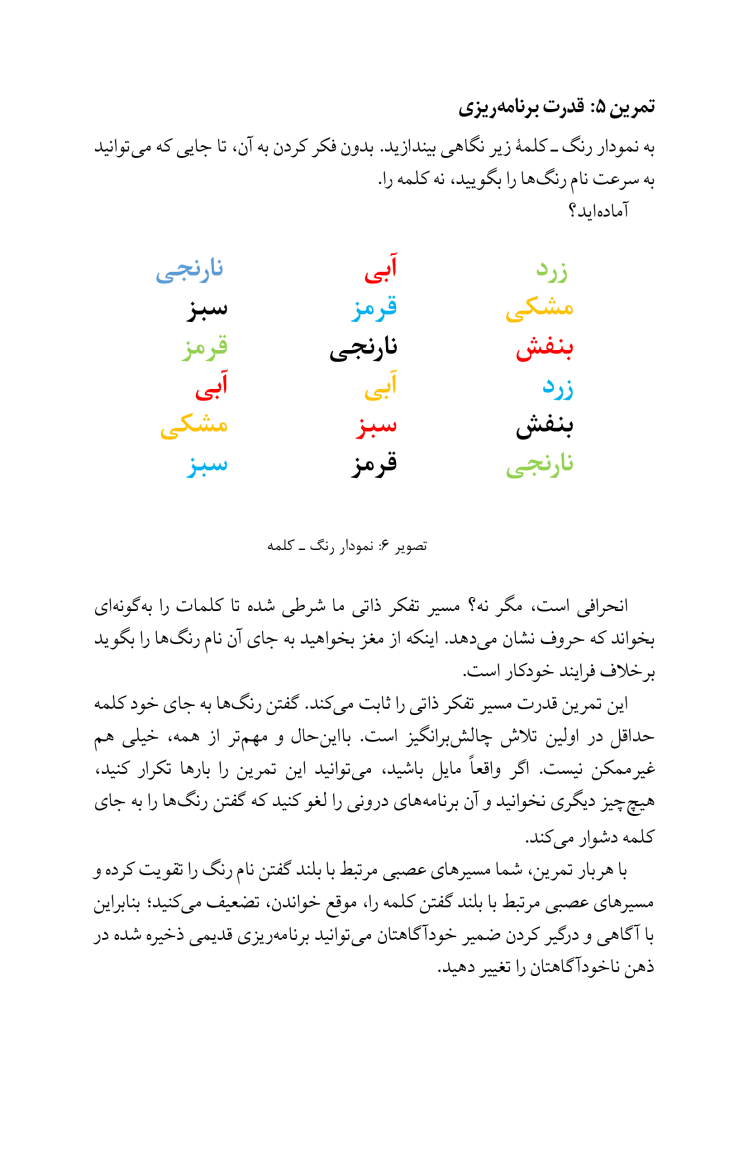 تمرین ۵: قدرت برنامه‌ریزی
به نمودار رنگ ـ کلمهٔ زیر نگاهی بیندازید. بدون فکر کردن به آن، تا جایی که می‌توانید
به سرعت نام رنگ‌ها را بگویید، نه کلمه را.
آماده‌اید؟
زرد آبی نارنجی
مشکی قرمز سبز
بنفش نارنجی قرمز
زرد آبی آبی
بنفش سبز مشکی
نارنجی قرمز سبز
تصویر ۶: نمودار رنگ ـ کلمه
انحرافی است، مگر نه؟ مسیر تفکر ذاتی ما شرطی شده تا کلمات را به‌گونه‌ای
بخواند که حروف نشان می‌دهد. اینکه از مغز بخواهید به جای آن نام رنگ‌ها را بگوید
برخلاف فرایند خودکار است.
این تمرین قدرت مسیر تفکر ذاتی را ثابت می‌کند. گفتن رنگ‌ها به جای خود کلمه
حداقل در اولین تلاش چالش‌برانگیز است. بااین‌حال و مهم‌تر از همه، خیلی هم
غیرممکن نیست. اگر واقعاً مایل باشید، می‌توانید این تمرین را بارها تکرار کنید،
هیچ‌چیز دیگری نخوانید و آن برنامه‌های درونی را لغو کنید که گفتن رنگ‌ها را به جای
کلمه دشوار می‌کند.
با هربار تمرین، شما مسیرهای عصبی مرتبط با بلند گفتن نام رنگ را تقویت کرده و
مسیرهای عصبی مرتبط با بلند گفتن کلمه را، موقع خواندن، تضعیف می‌کنید؛ بنابراین
با آگاهی و درگیر کردن ضمیر خودآگاهتان می‌توانید برنامه‌ریزی قدیمی ذخیره شده در
ذهن ناخودآگاهتان را تغییر دهید.